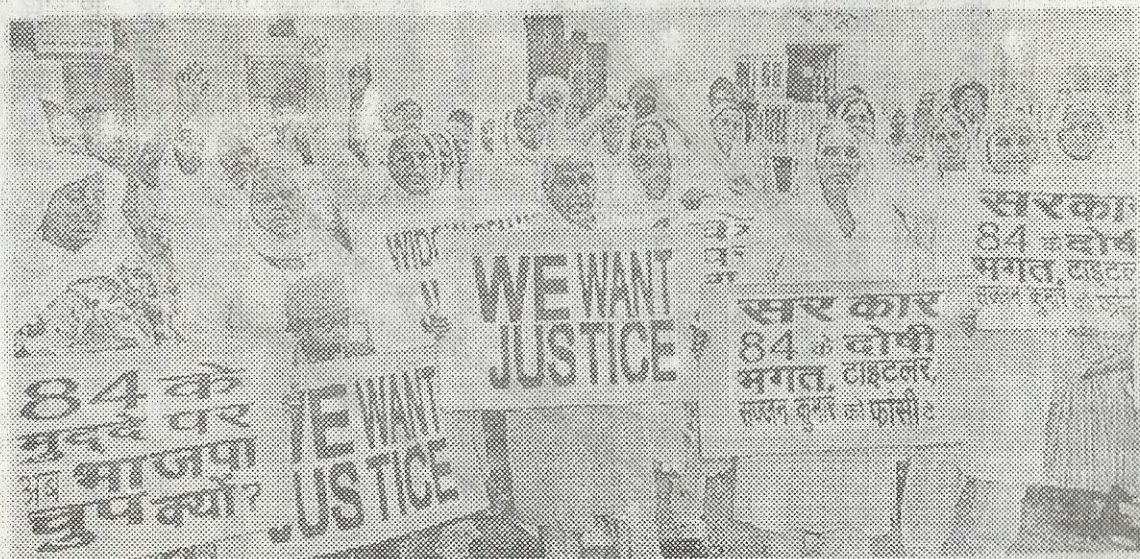 84 के
मुद्दे पर
अब भाजपा
चुप क्यों?
WE WANT
JUSTICE
WE WANT
JUSTICE
सरकार
84 के दोषी
भगत, टाइटलर,
सज्जन कुमार को फांसी दे
सरकार
84 के दोषी
भगत, टाइटलर
सज्जन कुमार को